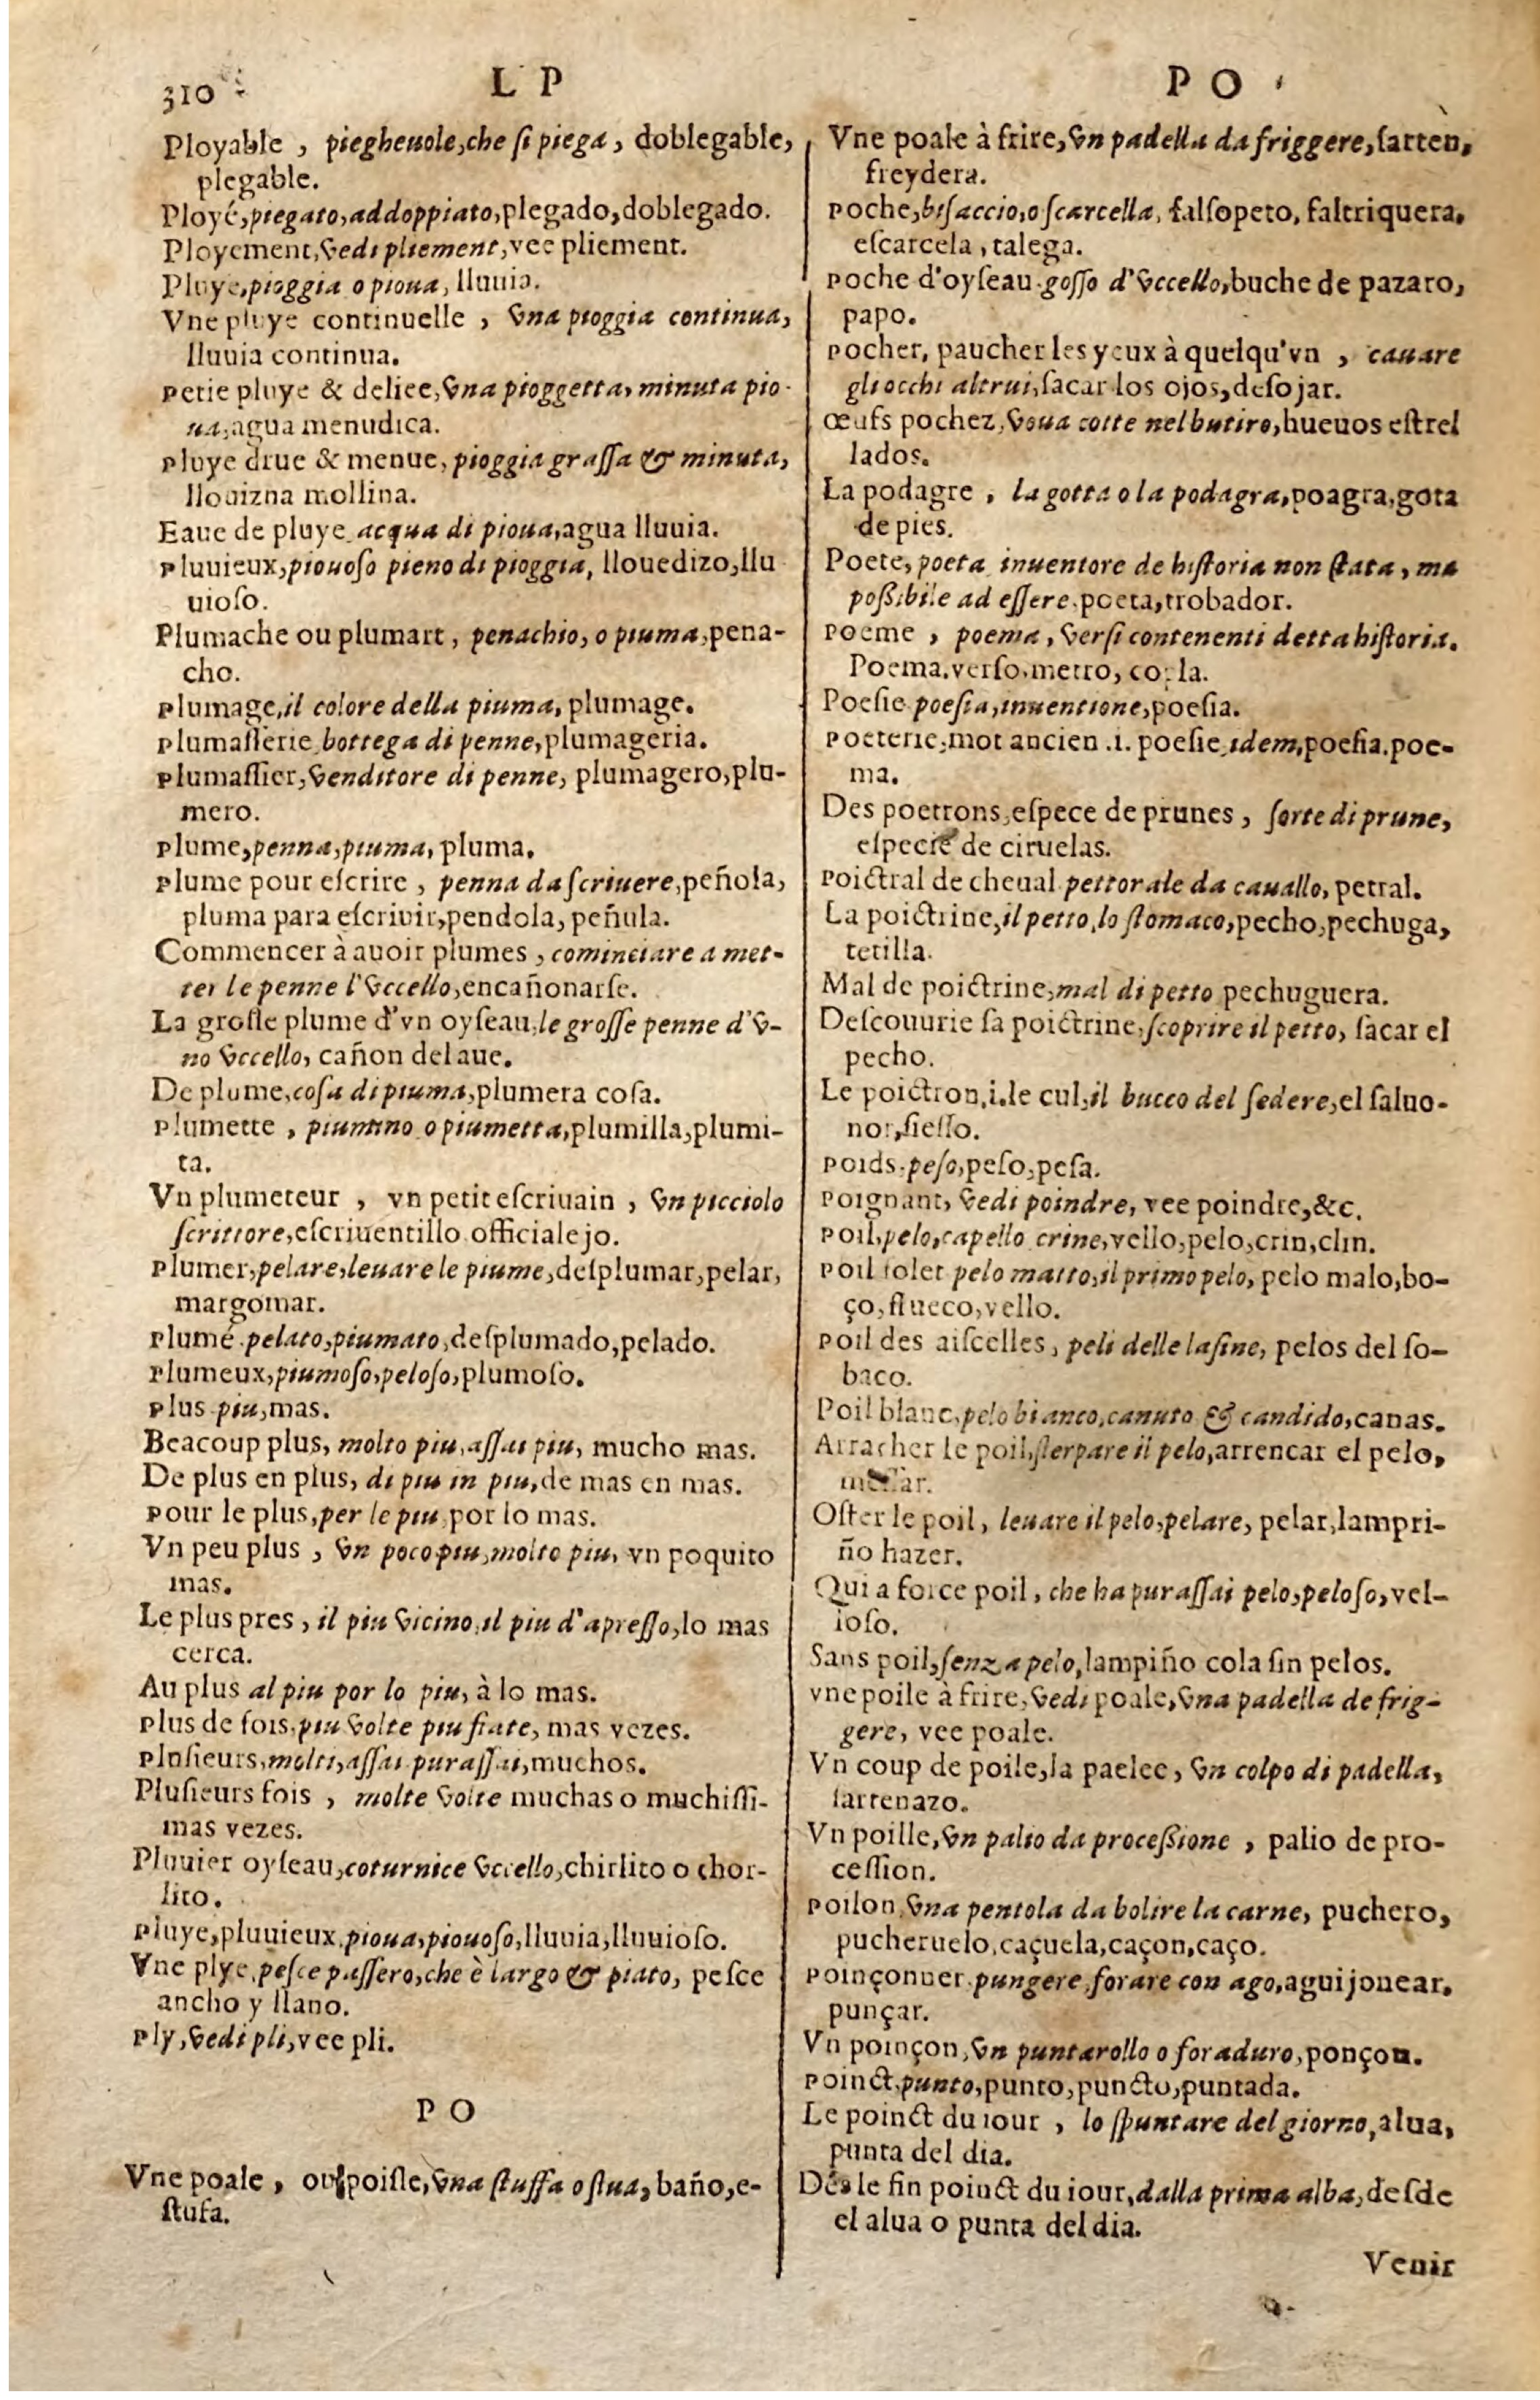 310
L P
P O
Ployable , pieghеuole,che ſi piega , doblegable,
plegable.
Ployé,piegato,addoppiato,plegado,doblegado.
Ployement,vedi pliement,vee pliement.
Pluye,pioggia o pioua, lluuia.
Vne pluye continuelle , vna pioggia continua,
lluuia continua.
Petie pluye & deliee,vna pioggetta, minuta pio-
ua,agua menudica.
Pluye drue & menue, pioggia graſſa & minuta,
llouizna mollina.
Eaue de pluye. acqua di pioua,agua lluuia.
Pluuieux,piouoſo pieno di pioggia, llouedizo,llu
uioſo.
Plumache ou plumart, penachio, o piuma,pena-
cho.
Plumage,il colore della piuma, plumage.
Plumaſſerie bottega di penne,plumageria.
Plumaſſier,venditore di penne, plumagero,plu-
mero.
Plume,penna,piuma, pluma.
Plume pour eſcrire , penna da ſcriuere,peñola,
pluma para eſcriuir,pendola, peñula.
Commencer à auoir plumes , cominciare a met-
ter le penne l'vccello,encañonarſe.
La groſſe plume d'vn oyſeau,le groſſe penne d'v-
no vccello, cañon del aue.
De plume,coſa di piuma,plumera coſa.
Plumette , piumino o piumetta,plumilla,plumi-
ta.
Vn plumeteur , vn petit eſcriuain , vn picciolo
ſcrittore,eſcriuentillo officialejo.
Plumer,pelare,leuare le piume,deſplumar,pelar,
margomar.
Plumé.pelato,piumato,deſplumado,pelado.
Plumeux,piumoſo,peloſo,plumoſo.
Plus piu,mas.
Beacoup plus, molto piu,aſſai piu, mucho mas.
De plus en plus, di piu in piu,de mas en mas.
Pour le plus,per le piu por lo mas.
Vn peu plus , vn poco piu,molto piu, vn poquito
mas.
Le plus pres , il piu vicino,il piu d'apreſſo,lo mas
cerca.
Au plus al piu por lo piu, à lo mas.
Plus de fois,piu volte piu fiate, mas vezes.
Pluſieurs,molti,aſſai puraſſai,muchos.
Pluſieurs fois , molte volte muchas o muchiſſi-
mas vezes.
Pluuier oyſeau,coturnice vccello,chirlito o chor-
lito.
Pluye,pluuieux,pioua,piouoſo,lluuia,lluuioſo.
Vne plye,peſce paſſero,che è largo & piato, peſce
ancho y llano.
Ply,vedi pli,vee pli.
P O
Vne poale , ou poiſle,vna ſtuffa o ſtua, baño,e-
ſtufa.
Vne poale à frire,vn padella da friggere,ſarten,
freydera.
Poche,biſaccio,o ſcarcella, falſopeto, faltriquera,
eſcarcela , talega.
Poche d'oyſeau.goſſo d'vccello,buche de pazaro,
papo.
Pocher, paucher les yeux à quelqu'vn , cauare
gli occhi altrui,ſacar los ojos,deſojar.
œufs pochez,voua cotte nel butiro,hueuos eſtrel
lados.
La podagre , la gotta o la podagra,poagra,gota
de pies.
Poete, poeta inuentore de hiſtoria non ſtata, ma
poßibile ad eſſere.poeta,trobador.
Poeme , poema , verſi contenenti detta hiſtoria.
Poema.verſo.metro, copla.
Poeſie poeſia,inuentione,poeſia.
Poeterie,mot ancien .i. poeſie,idem,poeſia.poe-
ma.
Des poetrons,eſpece de prunes , ſorte di prune,
eſpecie de ciruelas.
Poictral de cheual pettorale da cauallo, petral.
La poictrine,il petto,lo ſtomaco,pecho,pechuga,
tetilla.
Mal de poictrine,mal di petto pechuguera.
Deſcouurie ſa poictrine,ſcoprire il petto, ſacar el
pecho.
Le poictron,i.le cul,il bucco del ſedere,el ſaluo-
nor,ſieſſo.
Poids.peſo,peſo,peſa.
Poignant, vedi poindre, vee poindre,&c.
Poil,pelo,capello crine,vello,pelo,crin,clin.
Poil folet pelo matto,il primo pelo, pelo malo,bo-
ço,flueco,vello.
Poil des aiſcelles , peli delle laſine, pelos del ſo-
baco.
Poil blanc,pelo bianco,canuto & candido,canas.
Arracher le poil,ſterpare il pelo,arrencar el pelo,
Oſter le poil, leuare il pelo,pelare, pelar,lampri-
ño hazer.
Qui a force poil, che ha puraſſai pelo,peloſo,vel-
loſo.
Sans poil,ſenza pelo,lampiño cola ſin pelos.
vne poile à frire,vedi poale,vna padella de frig-
gere, vee poale.
Vn coup de poile,la paelee, vn colpo di padella,
ſartenazo.
Vn poille,vn palio da proceßione , palio de pro-
ceſſion.
Poilon,vna pentola da bolire la carne, puchero,
pucheruelo,caçuela,caçon,caço.
Poinçonner.pungere,forare con ago,aguijonear.
punçar.
Vn poinçon,vn puntarollo o foraduro,ponçon.
Poinct,punto,punto,puncto,puntada.
Le poinct du iour , lo ſpuntare del giorno,alua,
punta del dia.
Dés le fin poinct du iour,dalla prima alba,deſde
el alua o punta del dia.
Venir